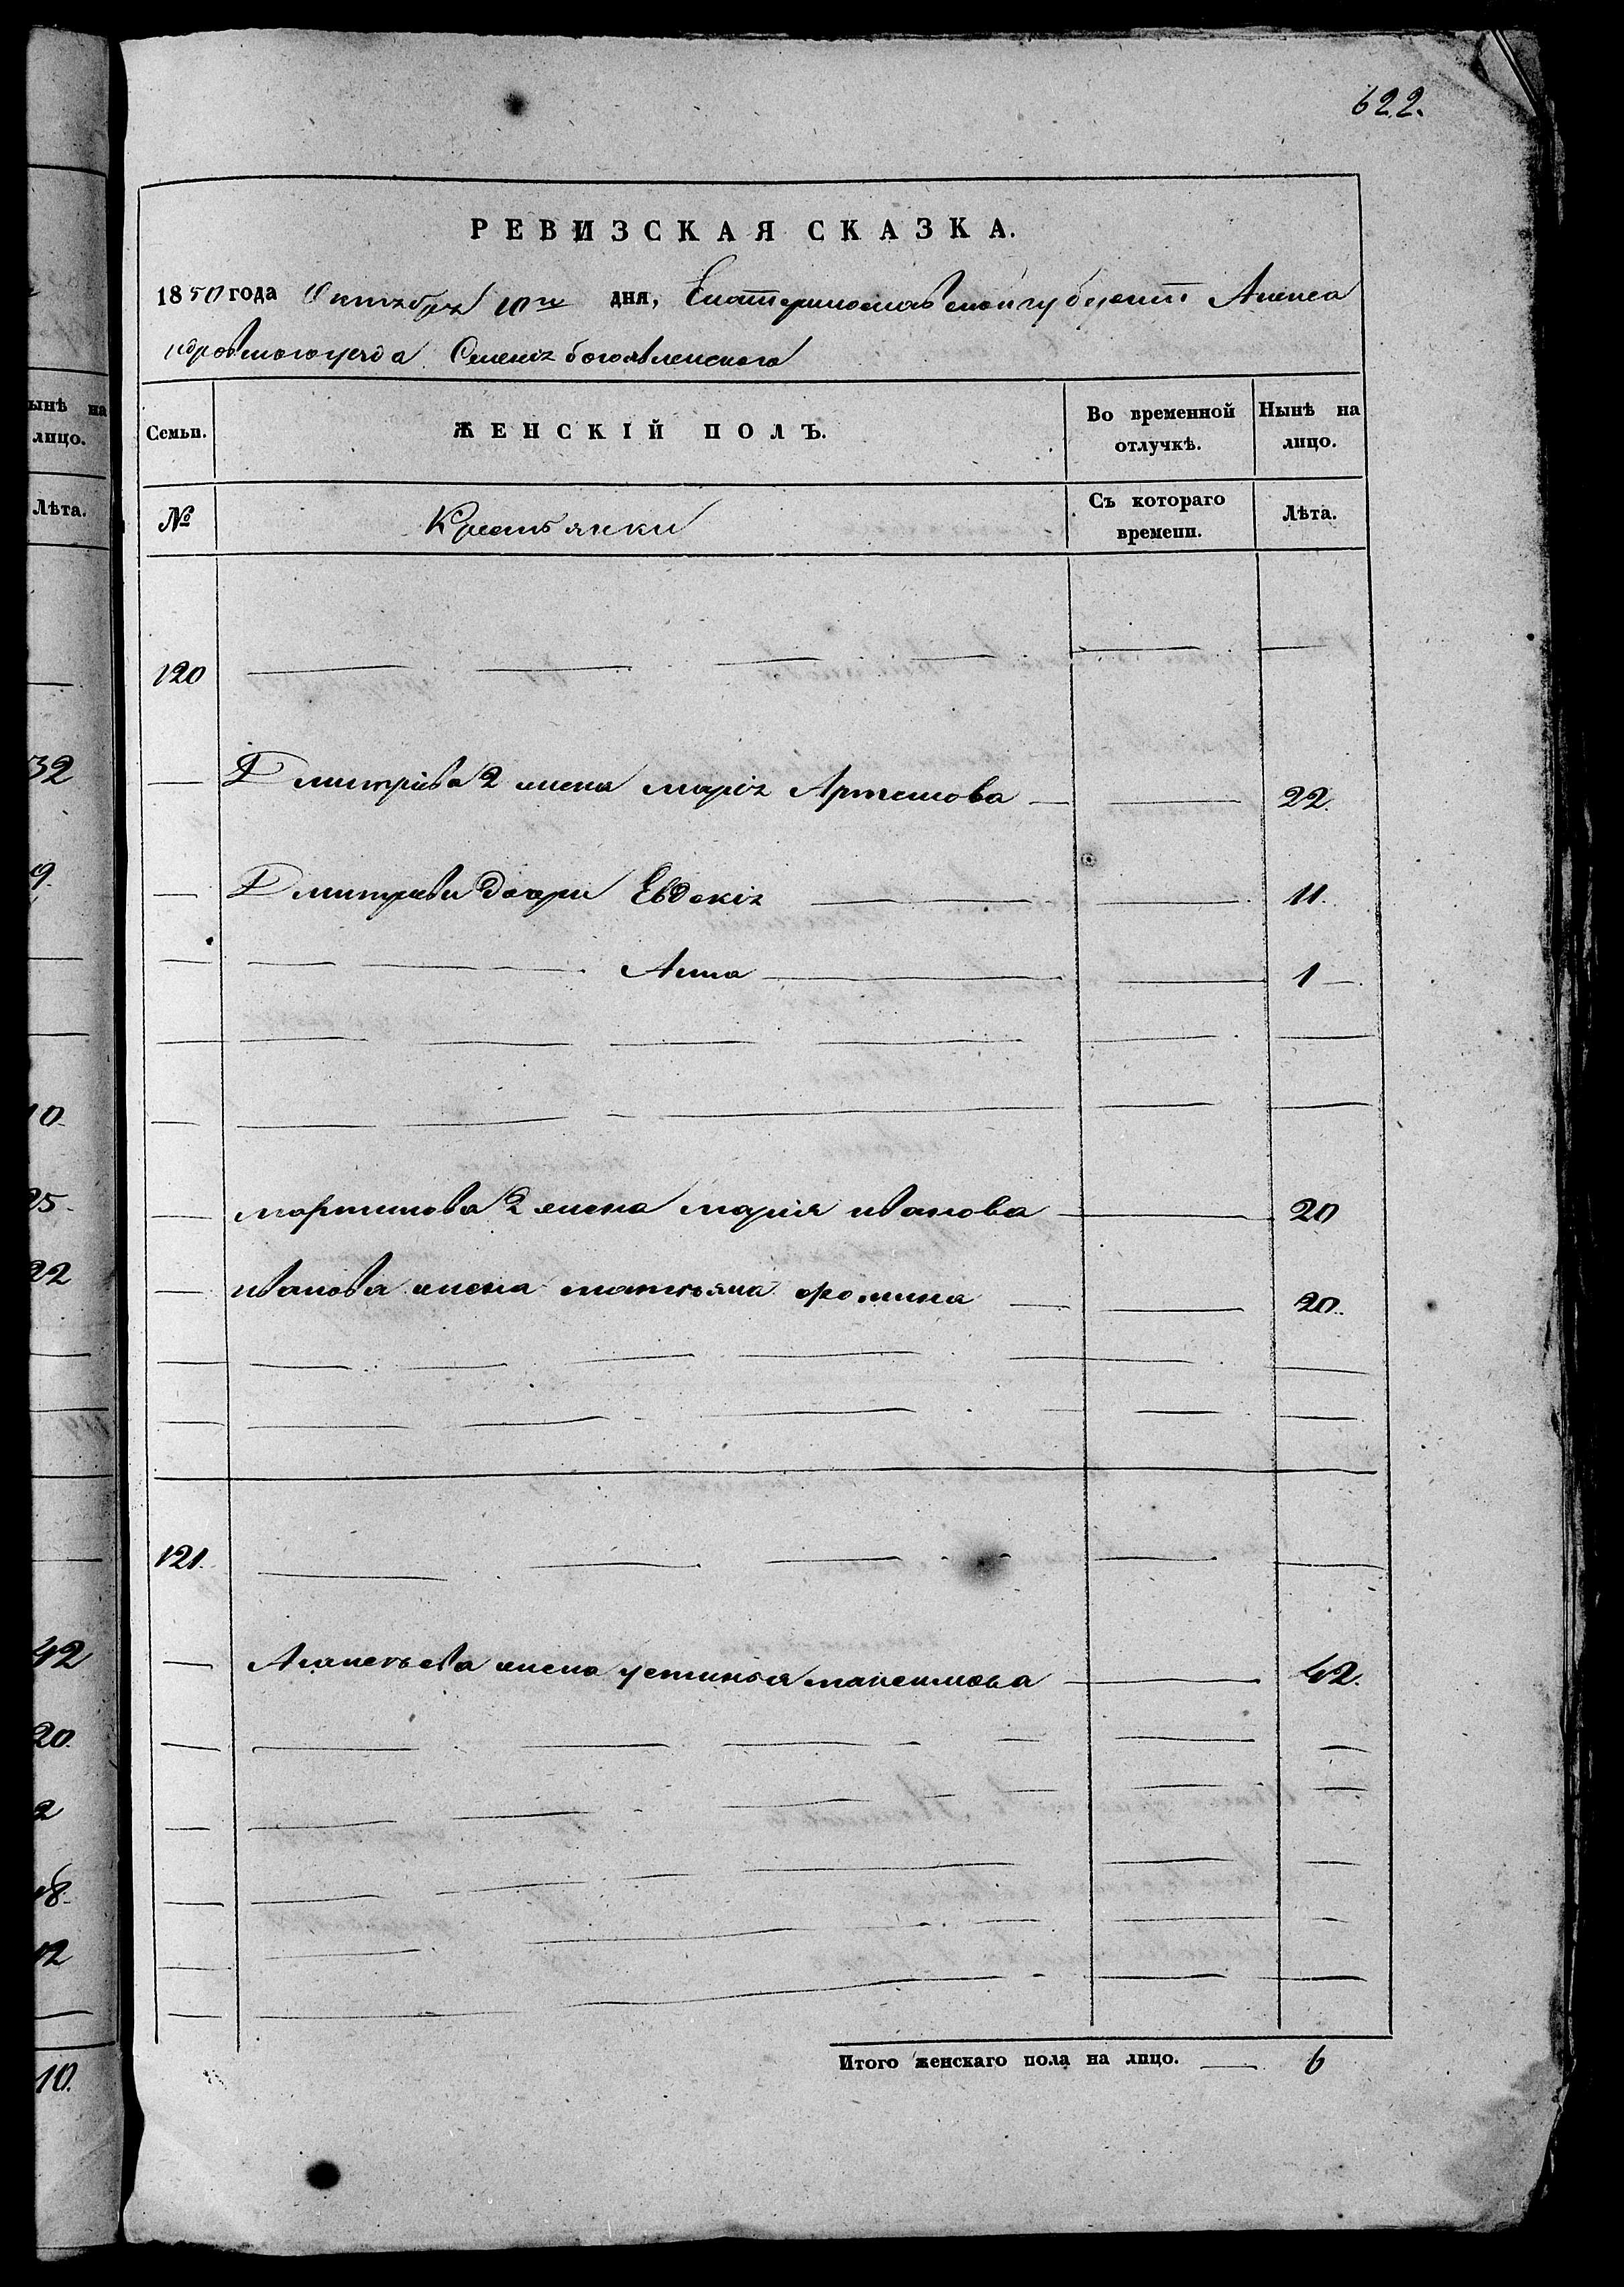 622.
РЕВИЗСКАЯ СКАЗКА.
1850 года Октября 10го дня, Екатеринославской губерніи Алекса
ндровского уезда Селенія богоявленского
Семьи. ЖЕНСКІЙ ПОЛЪ. Во временной отлучкѣ. Нынѣ на лицо.
№ Крестьянки Съ котораго времени. Лѣта.
120
Дмитріева 2 жена марія Артемова 22.
Дмитріевы дочери Евдокія 11.
Анна 1
мартинова 2 жена марія иванова 20
иванова жена татьяна фомина 20.
121.
жена устинья максимова 42.
Итого женскаго пола на лицо. 6
ынѣ на
лицо.
Лѣта.
32
9.
10.
25.
22
42
20.
2
18.
12
10.